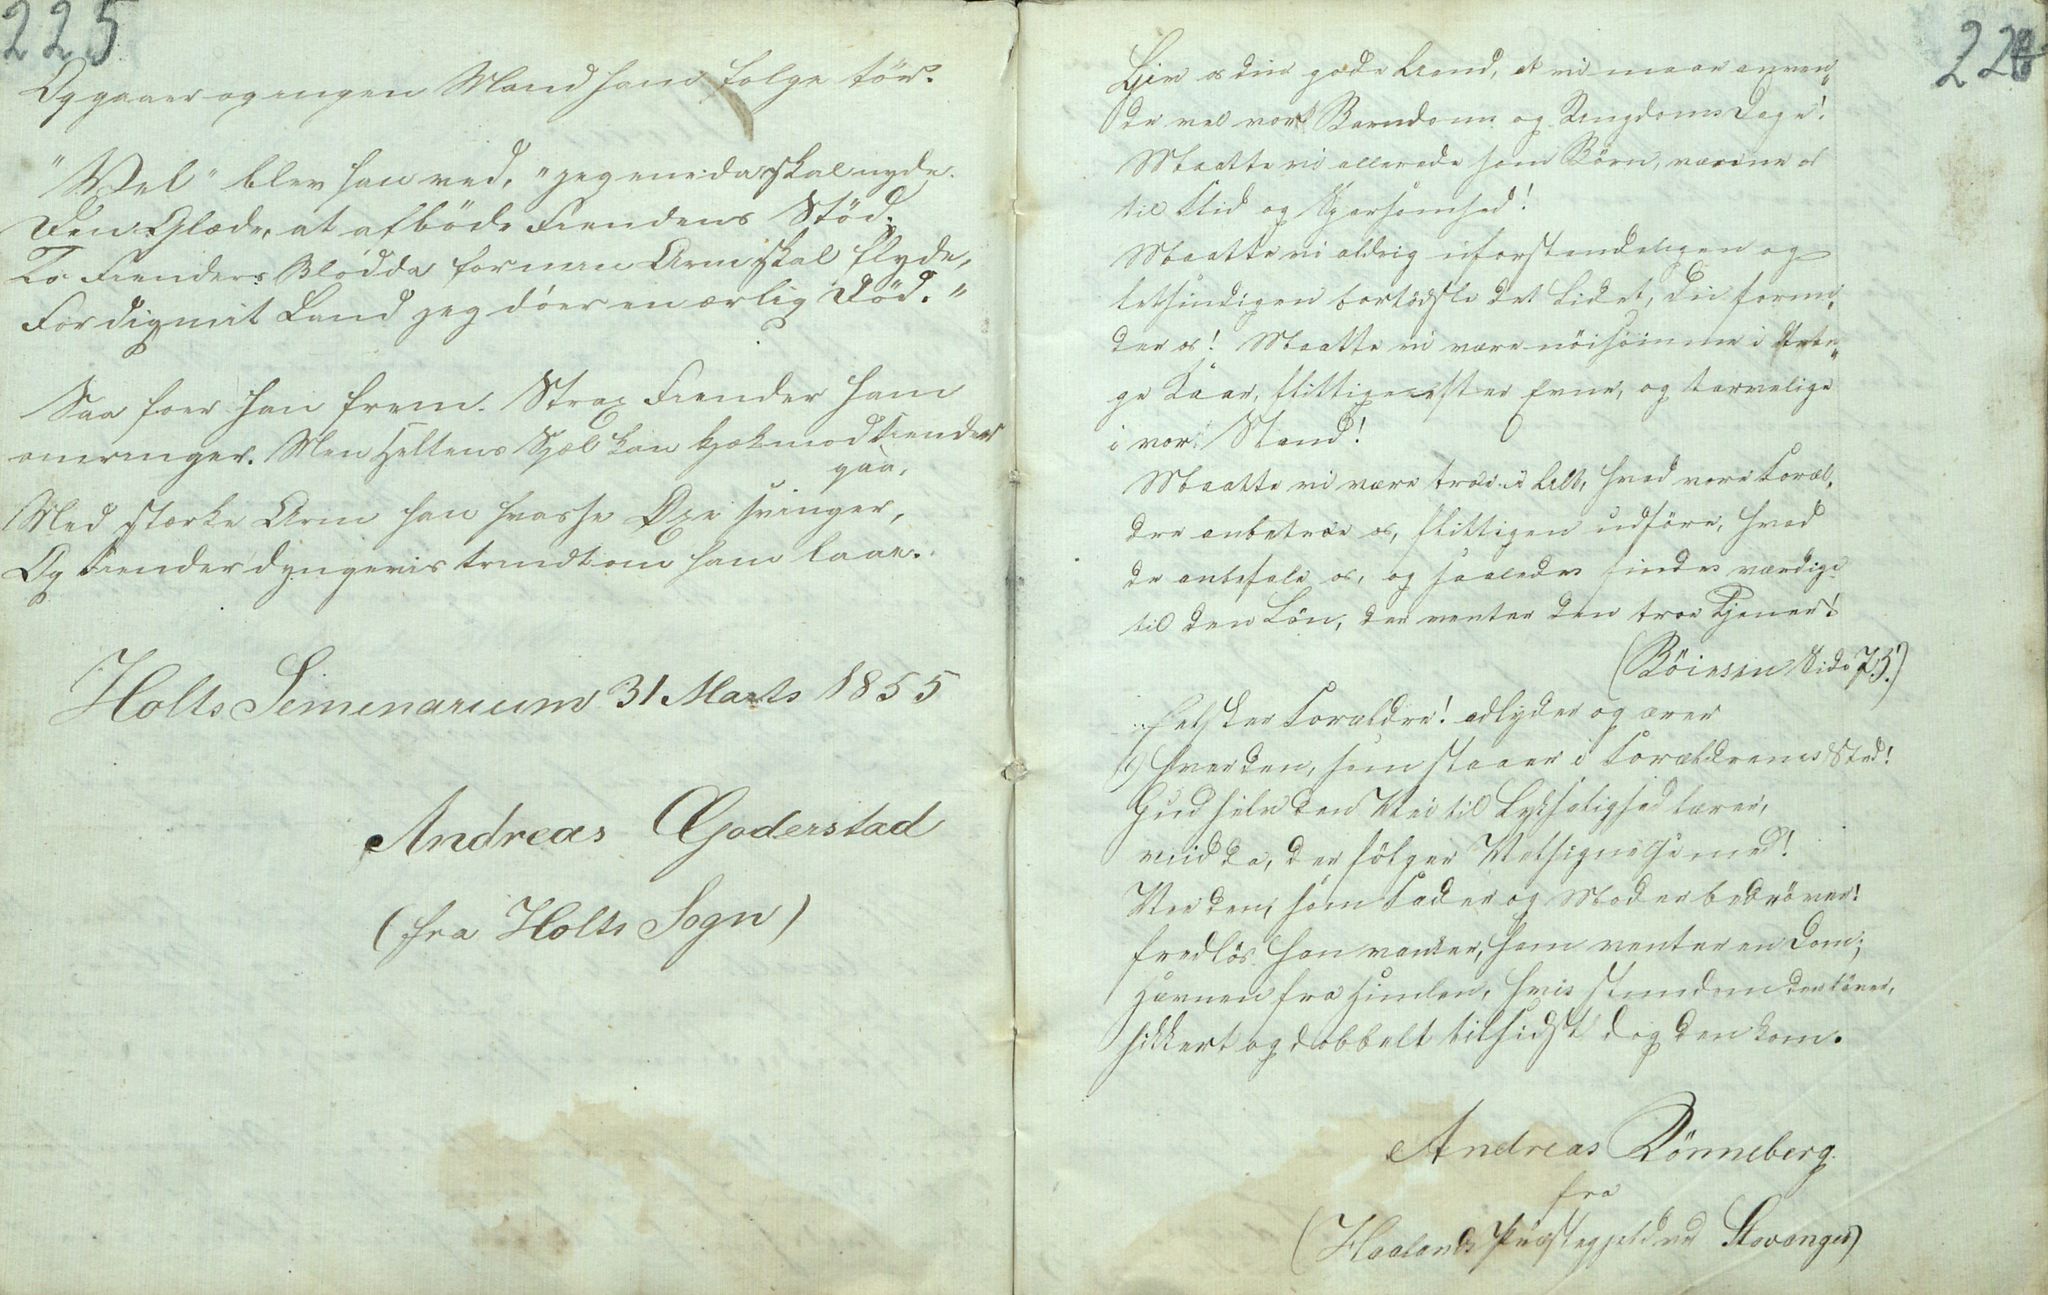 225
Og gaaer og ingen Mand ham følge tör.
"Vel" blev han ved, "jeg ene da skal nyde
Den Glæde, at afböde Fiendens Stöd;
To Fienders Blod da for min Arm skal flyde,
For dig mit Land jeg döer en ærlig Död."
Saa foer han frem. Strax Fiender ham
omringer. Men Heltens Sjæl kan kjæk mod Fienden
gaa,
Med stærke Arm han hvasse Öxe svinger,
Og Fiender dyngeviis trindt om ham laae.
Holts Seminarium 31 Marts 1855
Andreas Goderstad
(fra Holts Sogn)
226
Giv os din gode Aand, at vi maae anven„
de vel vor Barndoms og Ungdoms Dage!
Maatte vi allerede som Börn, vænne os
til Flid og Sparsomhed!
Maatte vi aldrig uforstandeligen og
letsindigen bortödsle det Lidet, du forun„
der os! Maatte vi være nöisomme i
ge Kaar, flittige efter Evne, og tarvelige
i vor Stand!
Maatte vi være troe i Alt, hvad vore Foræl„
dre anbetroe os, flittigen udföre, hvad
de anbefale os, og saaledes findes værdige
til den Lön, der venter den troe Tjener!
(Böiesen Side 75.)
Elsker Forældre! adlyder og ærer
Hver den, som staaer i Forældrenes Sted!
Gud selv den Vei til Lyksalighed lærer,
viid da, der fölger Velsignelse med!
Vee den, som Fader og Moder bedröver!
fredlös han vanker, ham venter en Dom;
Hævnen fra Himlen, hvis stundom den töver,
sikkert og dobbelt tilsidst dog den kom.
Andreas Rönneberg.
fra
(Haalands Præstegjeld ved Stavanger)